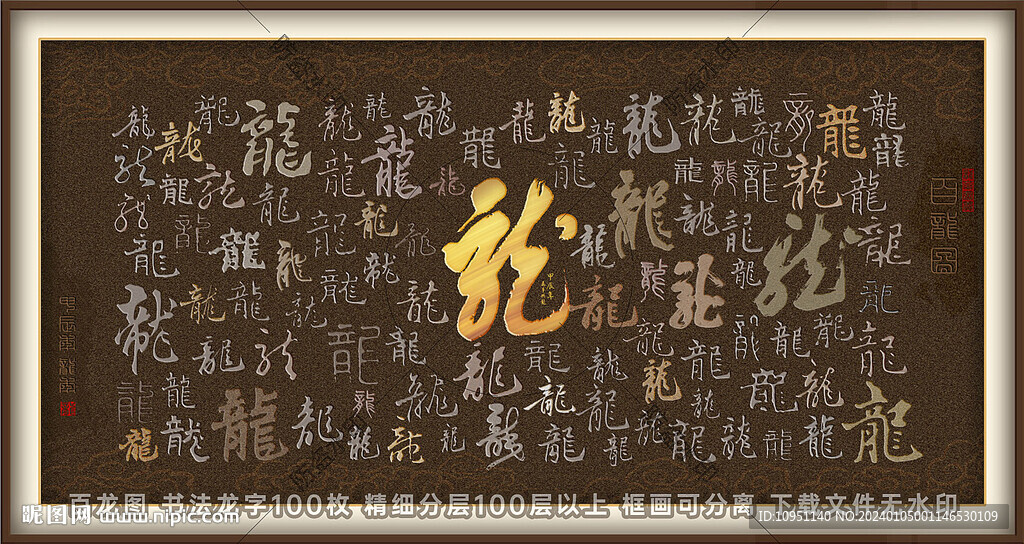 百龍圖
龍 龍 龍 龍 龍 龍 龍 龍 龍 龍 龍 龍 龍 龍 龍 龍
龍 龍 龍 龍 龍 龍 龍 龍 龍 龍 龍 龍 龍 龍 龍 龍
龍 龍 龍 龍 龍 龍 龍 龍 龍 龍 龍 龍 龍 龍 龍
龍 龍 龍 龍 龍 龍 龍 龍 龍 龍 龍 龍 龍 龍
甲辰年
龍 龍 龍 龍 龍 龍 龍 龍 龍 龍 龍 龍 龍
龍 龍 龍 龍 龍 龍 龍 龍 龍 龍 龍 龍 龍
龍 龍 龍 龍 龍 龍 龍 龍 龍 龍 龍 龍 龍
百龙图 书法龙字100枚 精细分层100层以上 框画可分离 下载文件无水印
昵图网 www.nipic.com
ID:10951140 NO.20240105001146530109